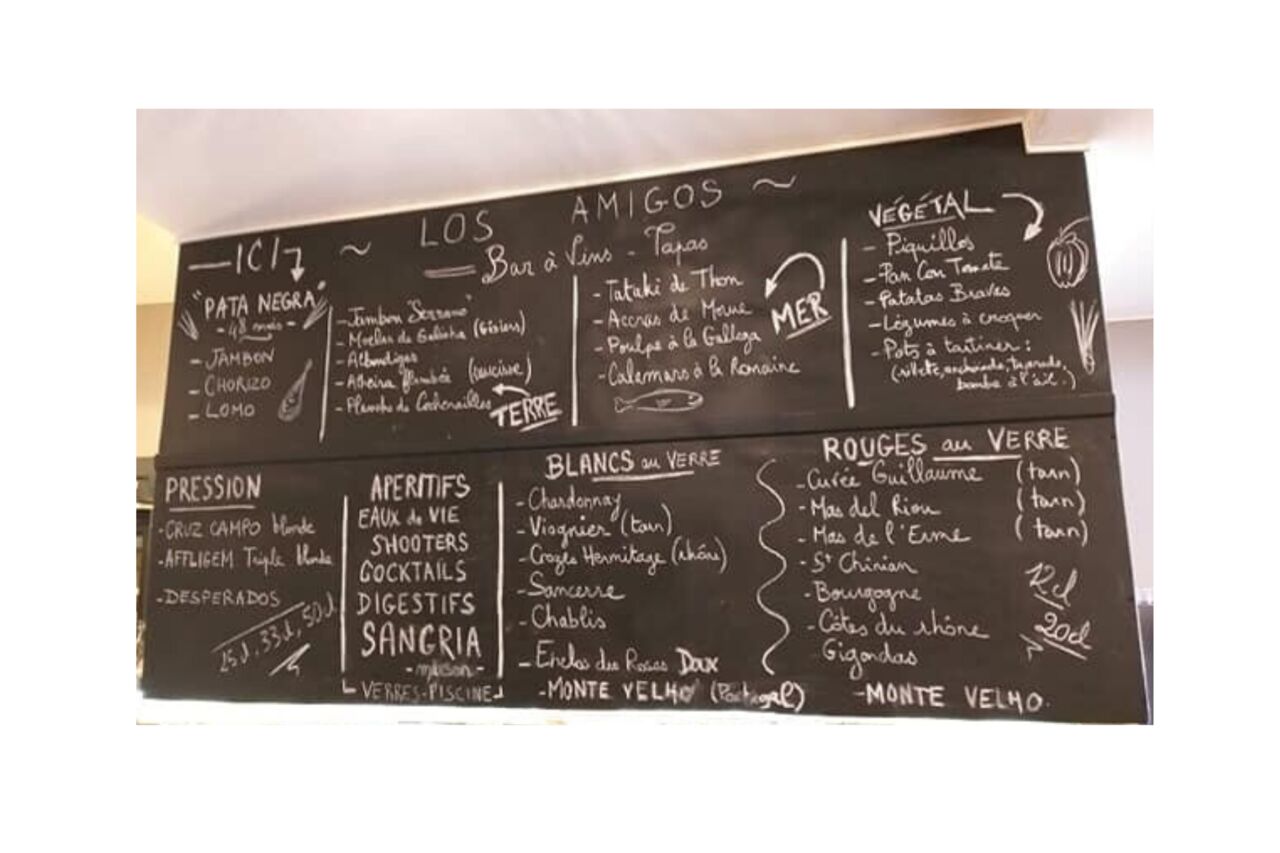 ~ LOS AMIGOS ~
Bar à Vins - Tapas
ICI
"PATA NEGRA"
- 48 mois -
- JAMBON
- CHORIZO
- LOMO
- Jambon "Serrano"
- Moelas de Galinha (Gésiers)
- Albondigas
- Alheira flambée (saucisse)
- Planche de Cochonailles
TERRE
- Tataki de Thon
- Accras de Morue
- Poulpe à la Gallega
- Calamars à la Romaine
MER
VÉGÉTAL
- Piquillos
- Pan Con Tomate
- Patatas Bravas
- Légumes à croquer
- Pots à tartiner :
(rillete, anchoiade, tapenade,
bomba à l'aïl.)
PRESSION
- CRUZ CAMPO blonde
- AFFLIGEM Triple blonde
- DESPERADOS
25cl, 33cl, 50cl
APERITIFS
EAUX de VIE
SHOOTERS
COCKTAILS
DIGESTIFS
SANGRIA
- maison -
VERRES-PISCINE
BLANCS au VERRE
- Chardonnay
- Viognier (tarn)
- Crozes Hermitage (rhône)
- Sancerre
- Chablis
- Enclos des Roses Doux
- MONTE VELHO (Portugal)
ROUGES au VERRE
- Cuvée Guillaume (tarn)
- Mas del Riou (tarn)
- Mas de l'Erme (tarn)
- St Chinian
- Bourgogne
- Côtes du rhône
Gigondas
- MONTE VELHO.
12cl
20cl